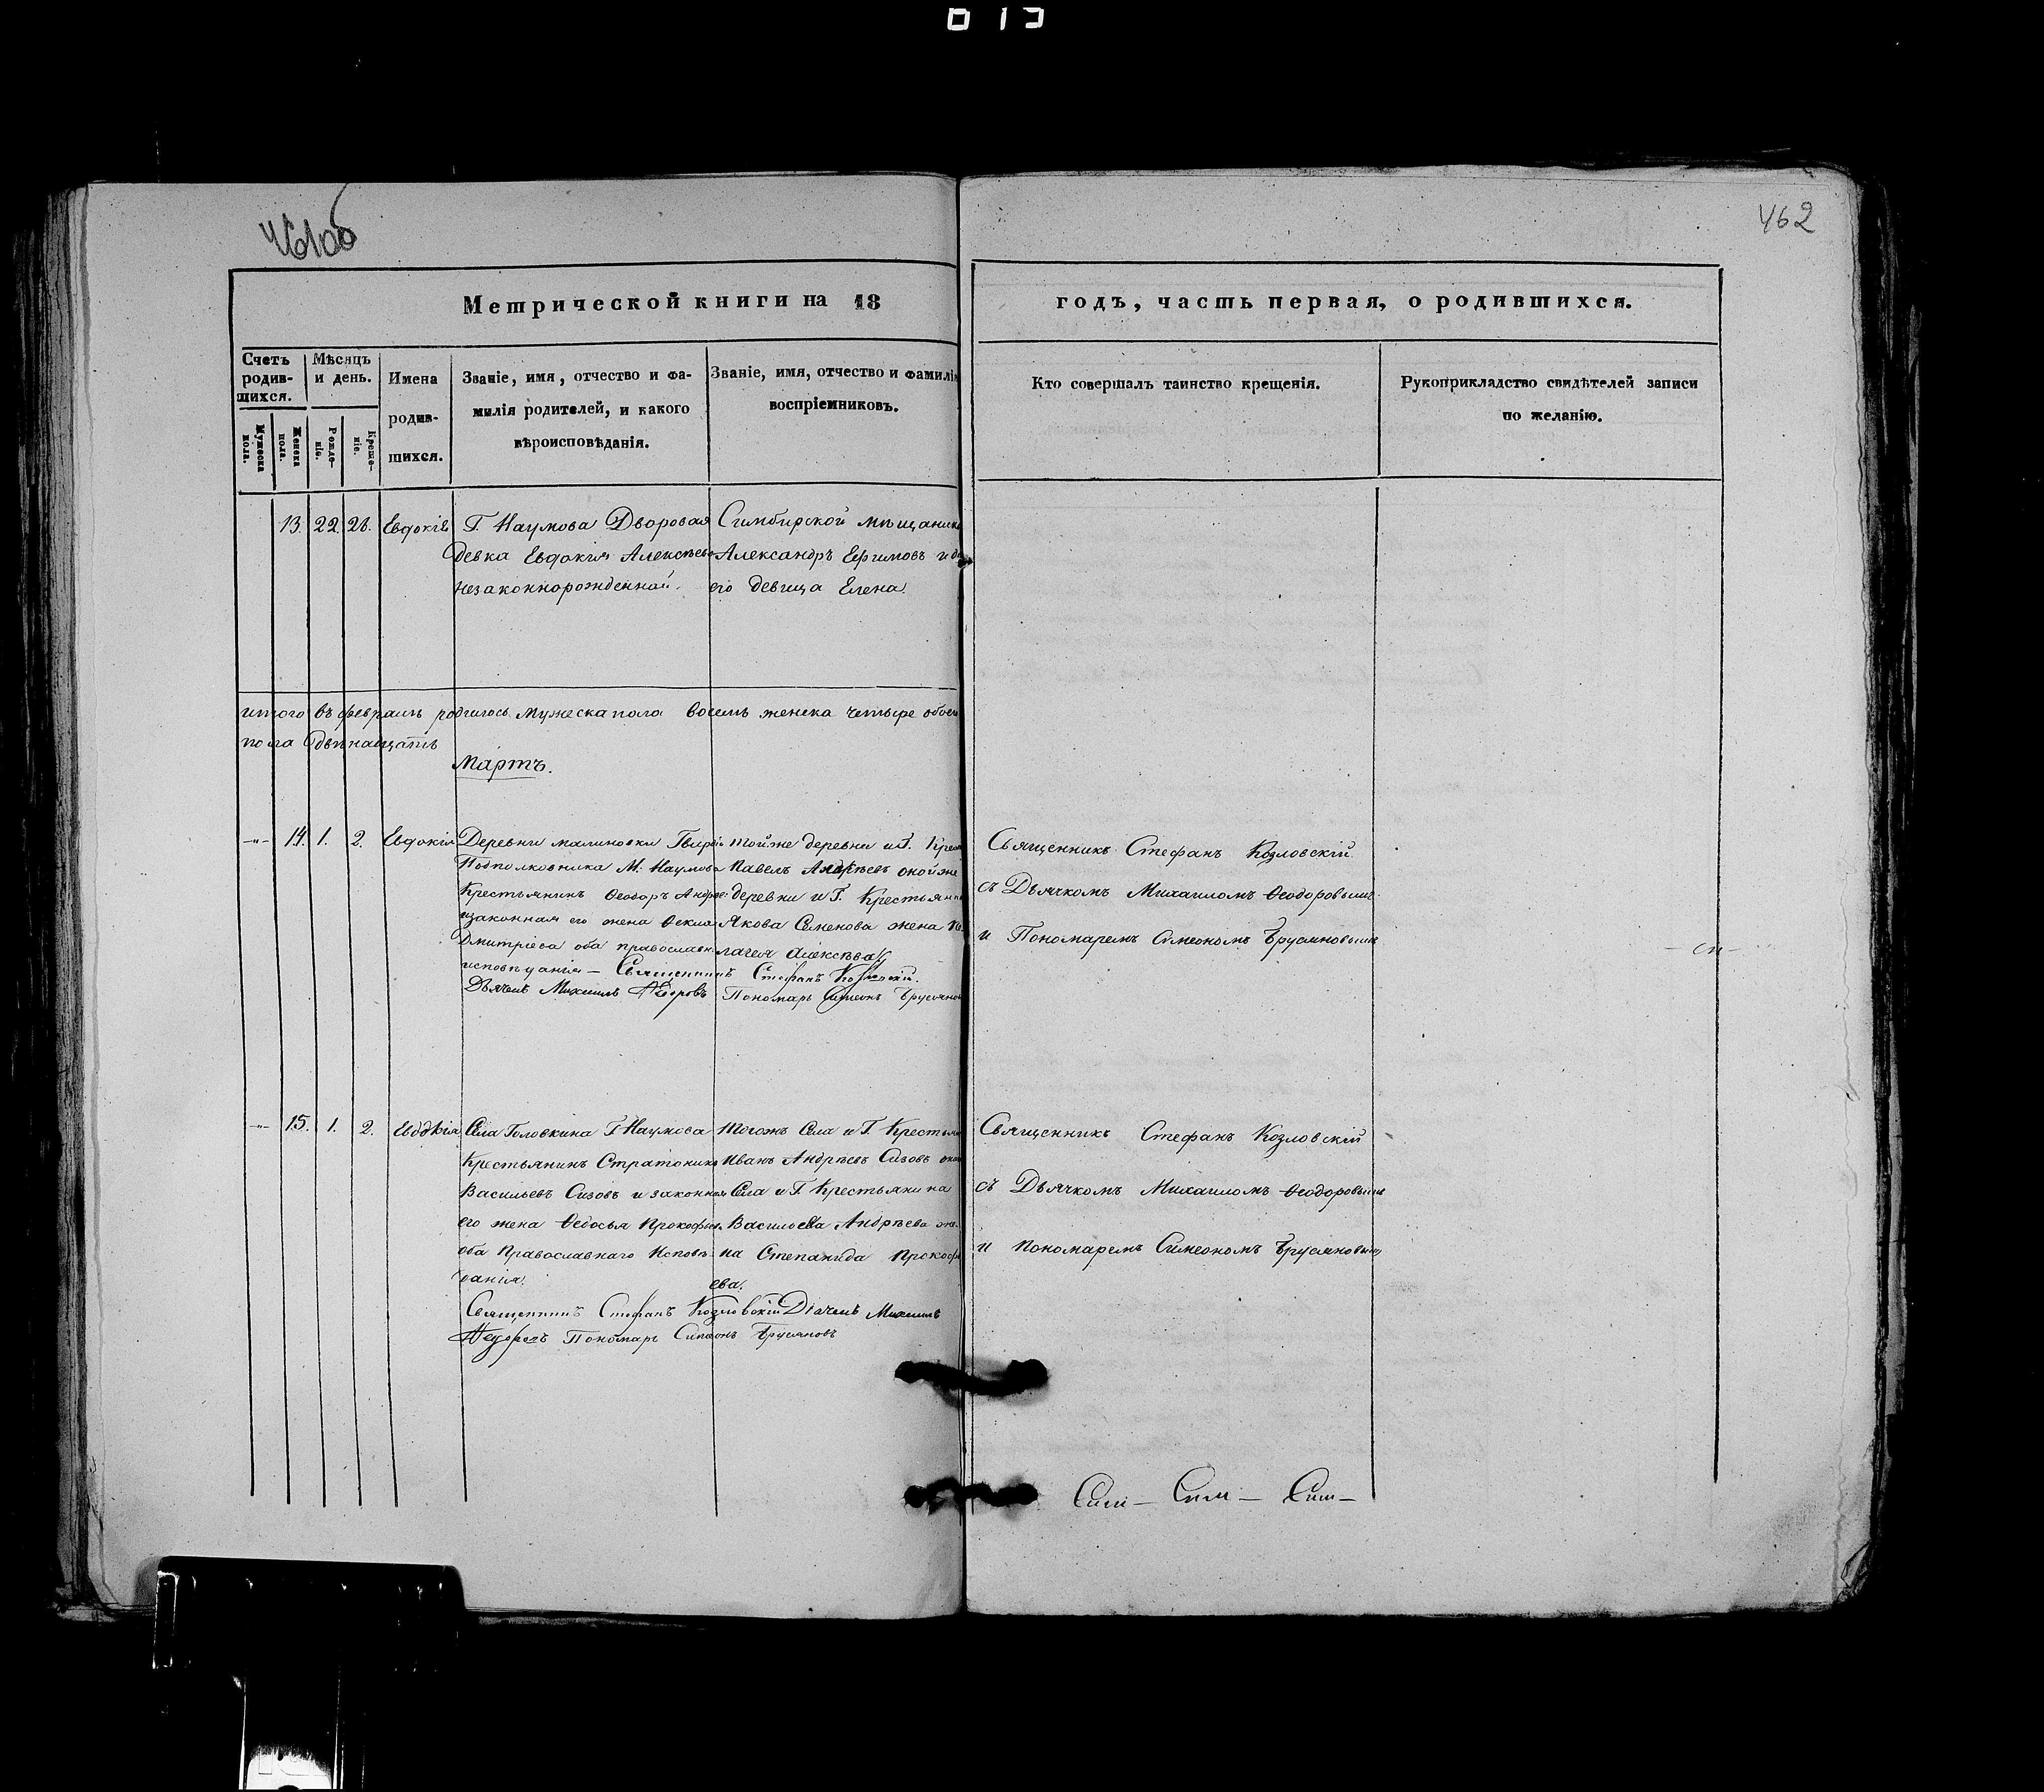 013
461об
462
Метрической книги на 18
годъ, часть первая, о родившихся.
Счетъ родив-шихся.
Мѣсяцъ и день.
Мужеска пола.
Женска пола.
Рожде-ніе.
Креще-ніе.
Имена родив-шихся.
Званіе, имя, отчество и фа-
милія родителей, и какого
вѣроисповѣданія.
Званіе, имя, отчество и фамилія
воспріемниковъ.
Кто совершалъ таинство крещенія.
Рукоприкладство свидѣтелей записи
по желанію.
13. 22. 26. Евдокія
Г. Наумова Дворовая
девка Евдокія Алексѣев
незаконнорожденной.
Симбирской мѣщанинъ
Александръ Ефимовъ и до
его девица Елена.
итого въ февралѣ родилось мужеска пола восемь женска четыре обоего
пола двѣнадцать
Мартъ.
-"- 14. 1. 2. Евдокія
Деревни малиновки
Подполковника М. Наумова
Крестьянинъ Ѳеодоръ Андре
изаконная его жена Ѳекла
Дмитріева оба православн
исповѣданія – Священникъ Стефанъ Козловскій.
Дьячекъ Михаилъ Ѳедоровъ Пономарь Симеонъ Брусянов
тойже деревни и Г. Крес
Павелъ Андрѣевъ онойже
деревни и Г. Крестьянин
Якова Семенова жена Пе
лагея Алексѣва
Священникъ Стефанъ Козловскій
съ Дьячкомъ Михаиломъ Ѳеодоровымъ
и Пономаремъ Симеономъ Брусяновымъ
-"- 15. 1. 2. Евдокія
Села Головкина Г. Наумова
Крестьянинъ Стратоникъ
Васильевъ Сизовъ и законная
его жена Ѳедосья Прокофье
оба Православнаго Исповѣ-
данія.
тогожъ Села и Г. Крестьян
Иванъ Андрѣевъ Сизовъ
Села и Г. Крестьянина
Васильева Андрѣева же-
на Степанида Прокофь
ева.
Священникъ Стефанъ Козловскій Діачекъ Михаилъ
Ѳедоровъ Пономарь Симеонъ Брусяновъ
Священникъ Стефанъ Козловскій
съ Дьячкомъ Михаиломъ Ѳеодоровымъ
и пономаремъ Симеономъ Брусяновымъ